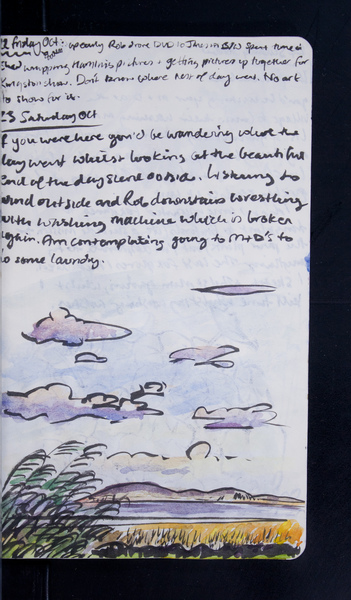 22 Friday Oct: up early Rob drove DVD to Spent time in
shed wrapping pictures + getting pictures up together for
show. Don't know where rest of day went. No art
to show for it.
23 Saturday Oct
If you were here you'd be wandering where the
day went whilst looking at the beautiful
end of the day scene outside. Listening to
wind outside and Rob downstairs wrestling
with washing machine which is broken
again. Am contemplating going to M+D's to
do some laundry.